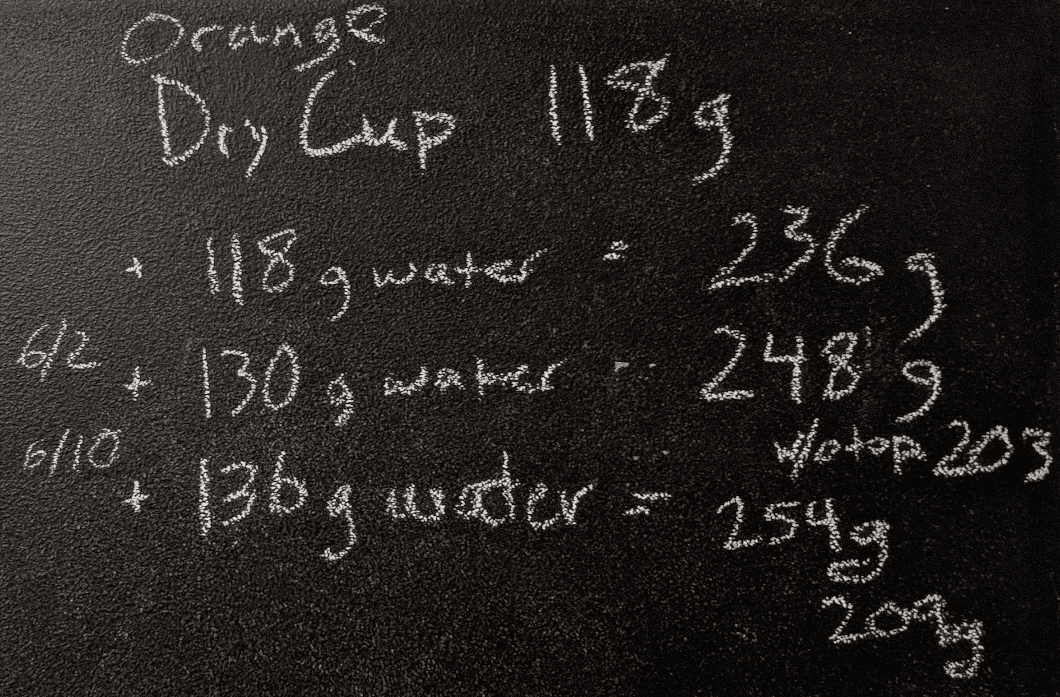 Orange
Dry Cup 118 g
+ 118 g water = 236 g
6/2 + 130 g water = 248 g
w/o top 203
6/10 + 136 g water = 254g
204g